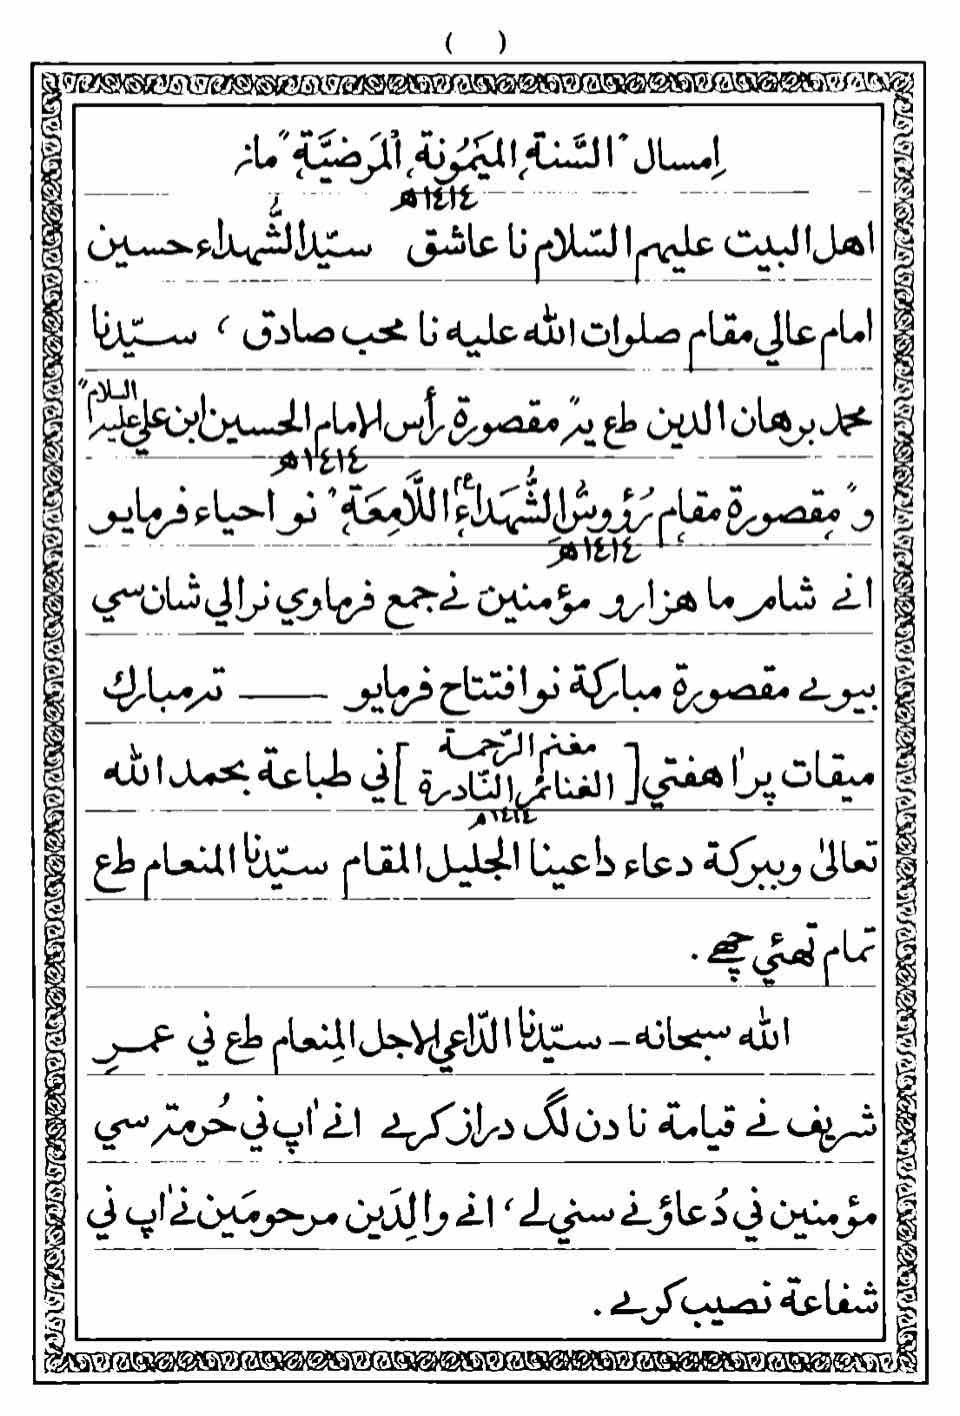 ( )
اِمسال "السَّنة المَيمُونة المَرضيَّة" ماں
١٤١٤ھ
اهل البيت عليهم السّلام نا عاشق سيّد الشُّهداء حسين
امام عالي مقام صلوات الله عليه نا محب صادق ، سيّدنا
محمد برهان الدين طع يہ "مقصورة رأس الامام الحسين ابن علي عليه السلام"
١٤١٤ھ
و "مقصورة مقام رُؤوسِ الشُّهَدَاءِ ع اللَّامِعَة" نو احياء فرمايو
١٤١٤ھ
انے شام ما هزارو مؤمنين نے جمع فرماوي نرالي شان سي
بيوے مقصورة مباركة نو افتتاح فرمايو ــــــ تہ مبارك
ميقات پر اٰ هفتي [ مغنم الرّحمة
الغنائم النّادرة ] ني طباعة بحمد الله
١٤١٤ھ
تعالىٰ وببركة دعاء داعينا الجليل المقام سيّدنا المنعام طع
تمام تهئي چهے .
الله سبحانه ــ سيّدنا الدّاعي الاجل المِنعام طع ني عمرِ
شريف نے قيامة نا دن لگ دراز كرے انے اٰپ ني حُرمة سي
مؤمنين ني دُعاؤ نے سني لے ، انے والِدَين مرحومَين نے اٰپ ني
شفاعة نصيب كرے .